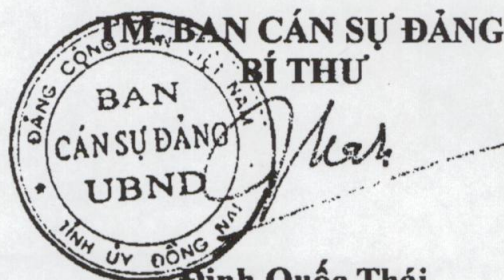 TM. BAN CÁN SỰ ĐẢNG
BÍ THƯ
ĐẢNG CỘNG SẢN VIỆT NAM
BAN
CÁN SỰ ĐẢNG
UBND
TỈNH ỦY ĐỒNG NAI
Đinh Quốc Thái